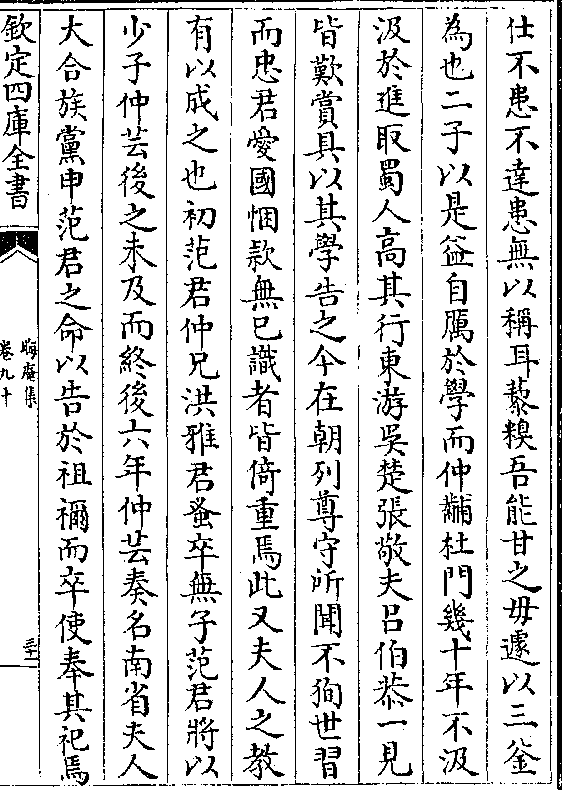 仕不患不達患無以稱耳藜糗吾能甘之毋遽以三釜
為也二子以是益自厲於學而仲黼杜門幾十年不汲
汲於進取蜀人高其行東游吳楚張敬夫吕伯恭一見
皆歎賞具以其學告之今在朝列尊守所聞不狥世習
而忠君愛國悃款無已識者皆倚重焉此又夫人之教
有以成之也初范君仲兄洪雅君蚤卒無子范君將以
少子仲芸後之未及而終後六年仲芸奏名南省夫人
大合族黨申范君之命以告於祖禰而卒使奉其祀焉
欽定四庫全書
晦庵集
卷九十
三十